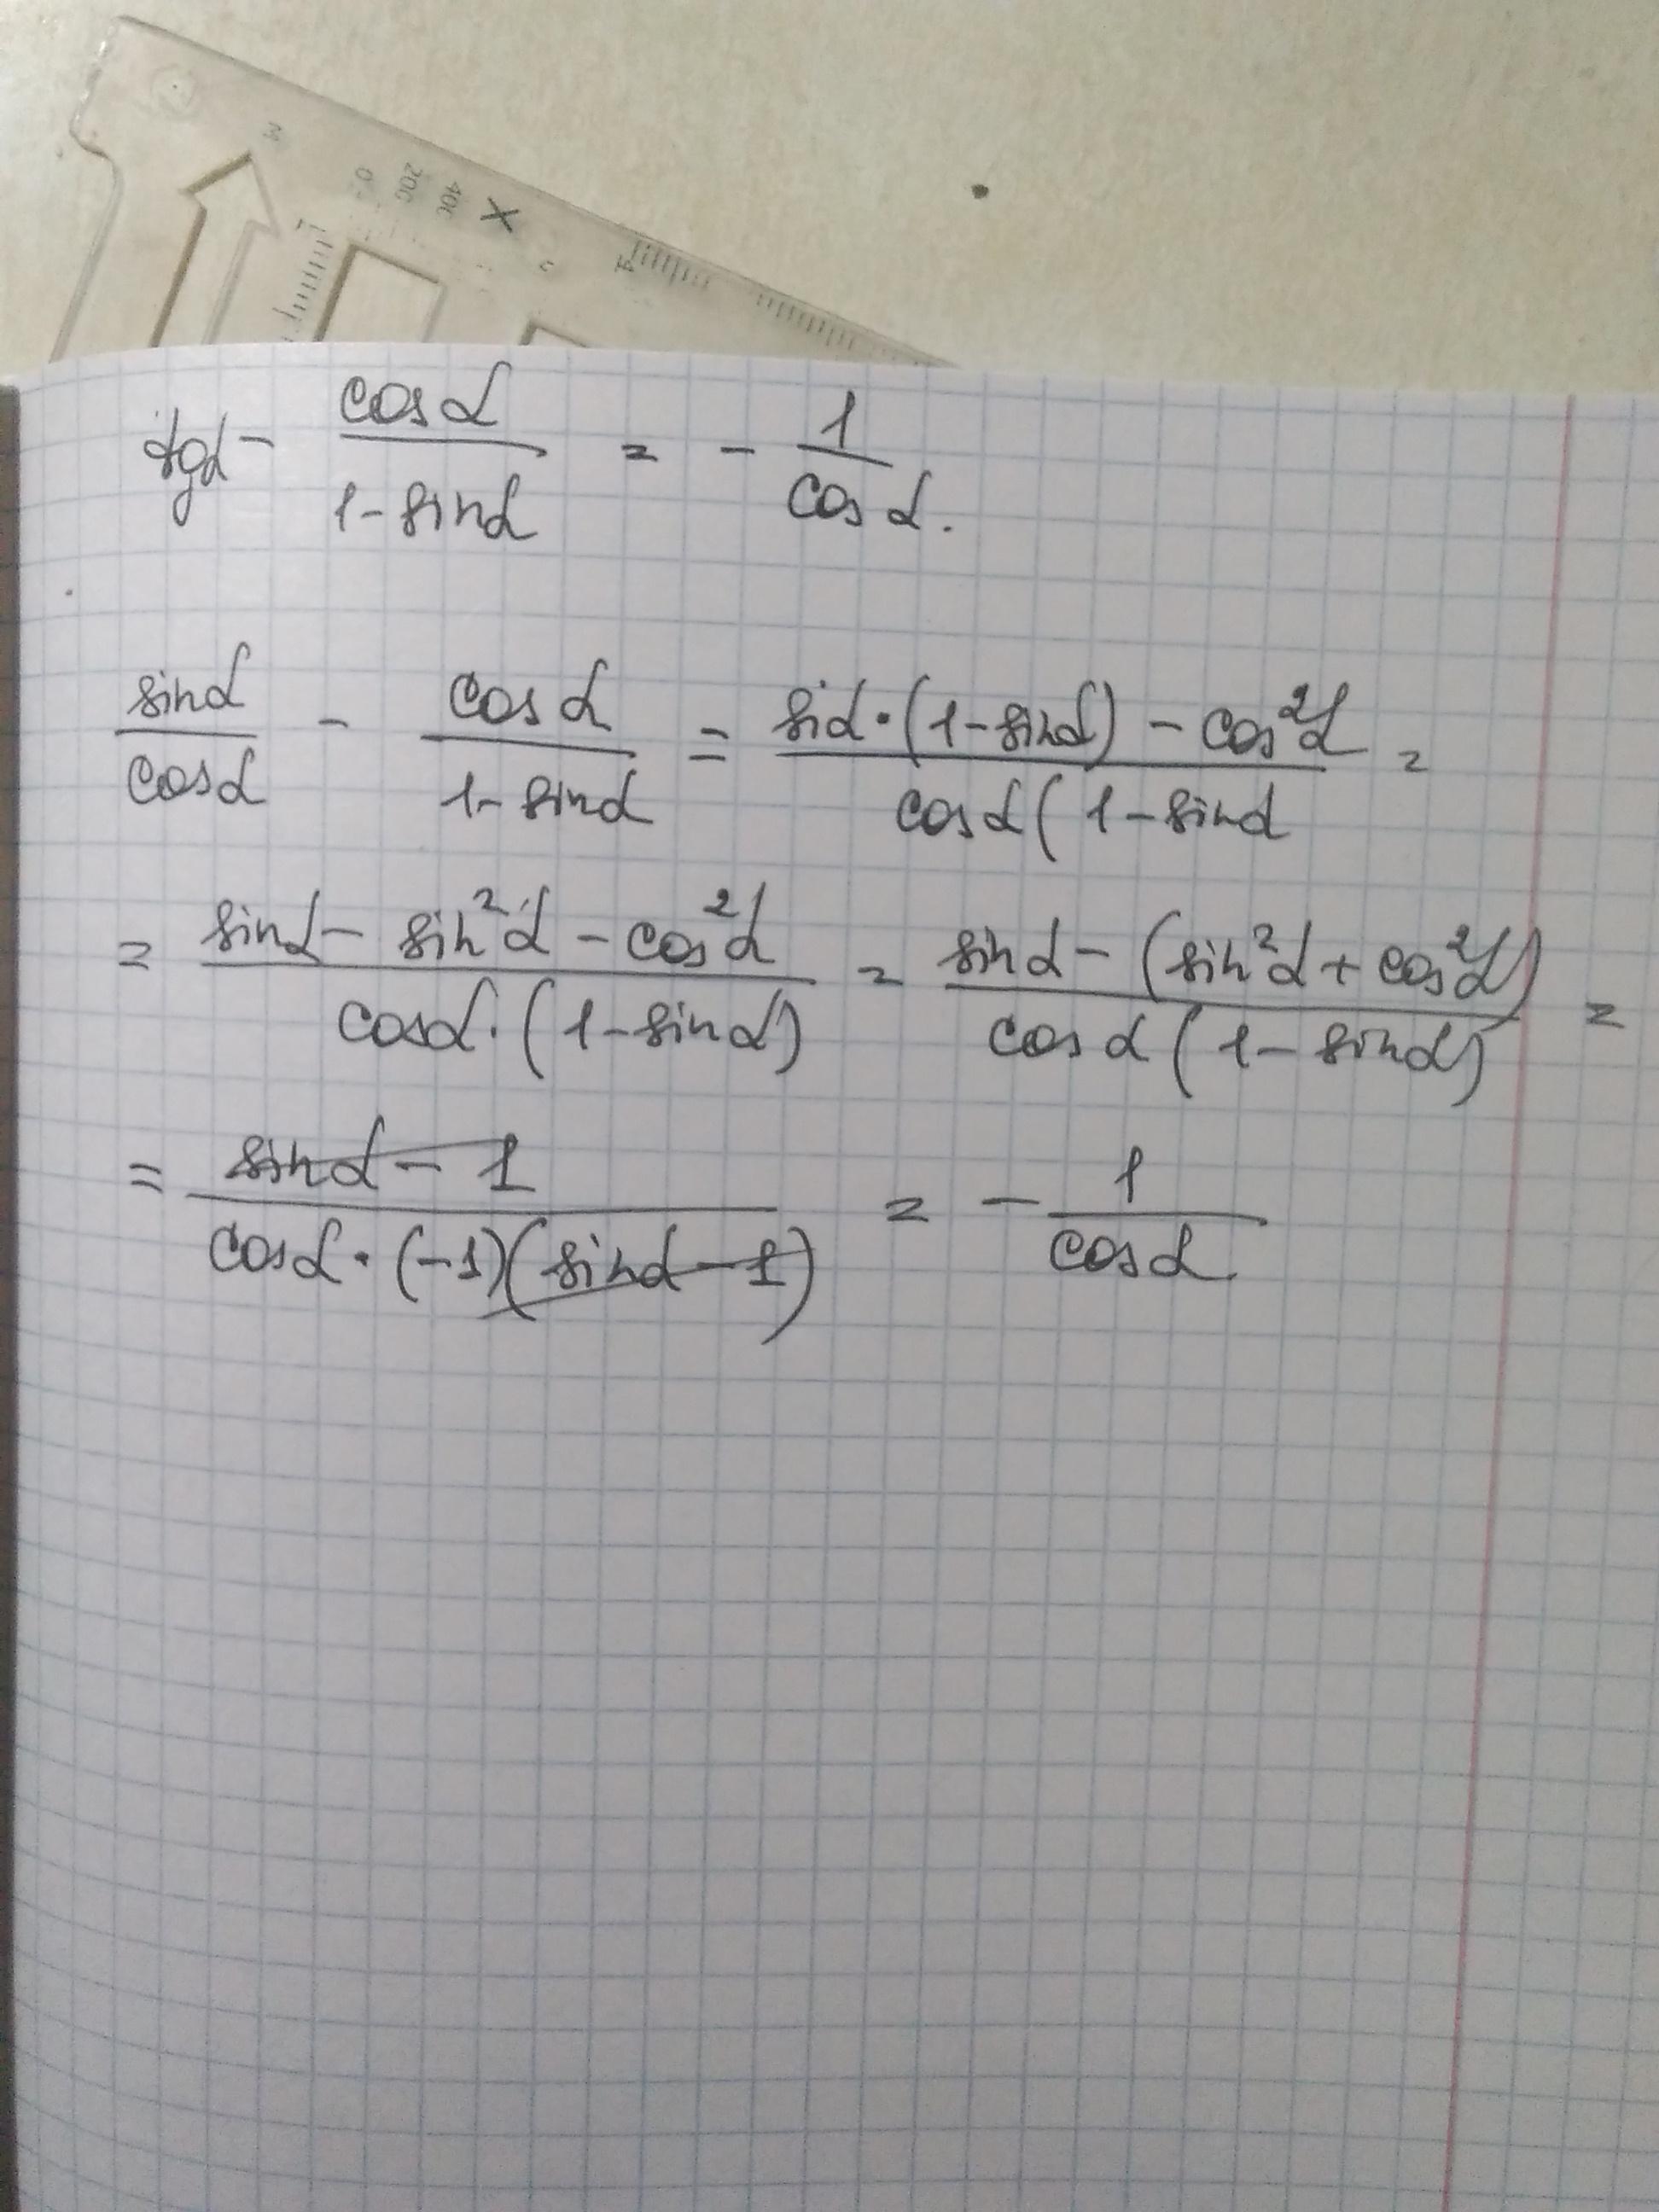 0 200 400 X
tgα - cosα / 1-sinα = - 1 / cosα.
sinα / cosα - cosα / 1-sinα = siα·(1-sinα) - cos²α / cosα(1-sinα =
= sinα - sin²α - cos²α / cosα·(1-sinα) = sinα - (sin²α + cos²α) / cosα(1-sinα) =
= sinα - 1 / cosα·(-1)(sinα - 1) = - 1 / cosα